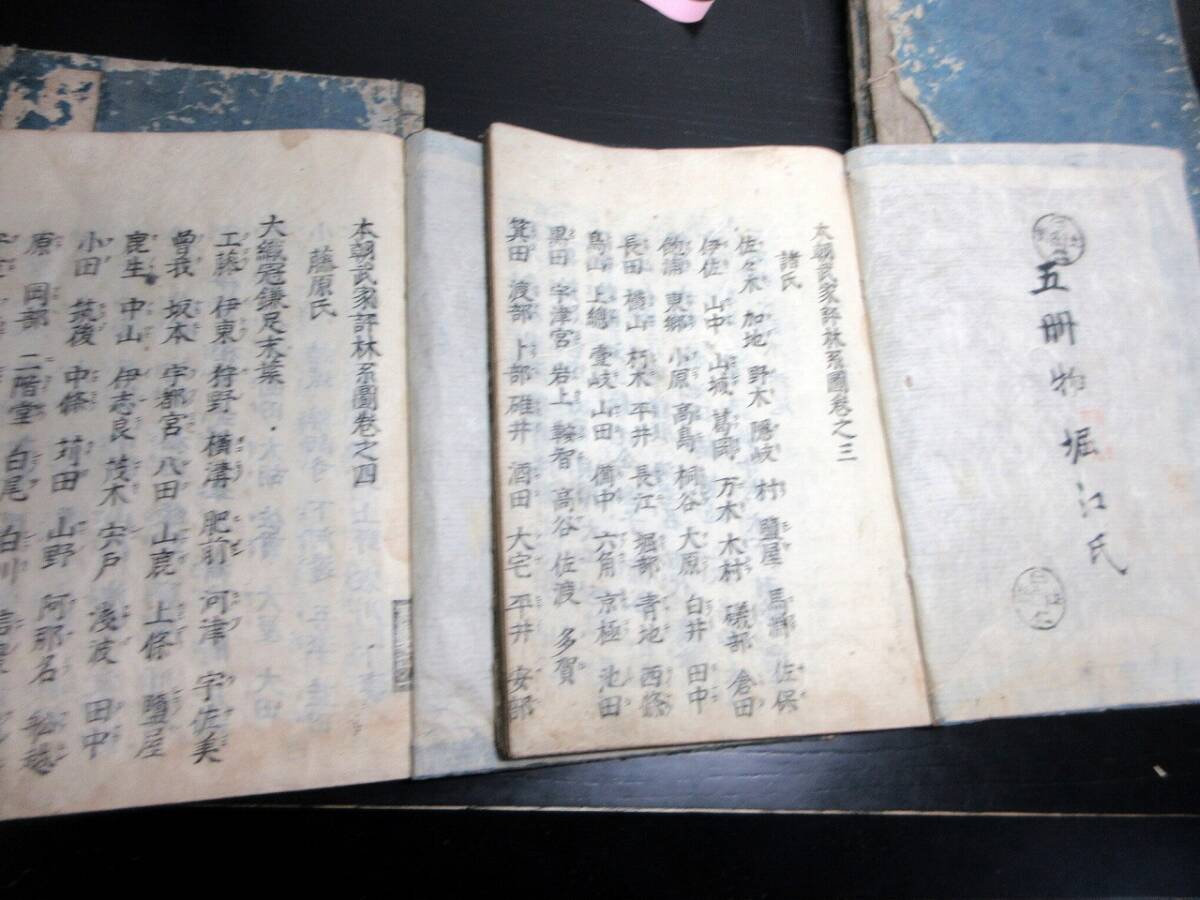 五冊物堀江氏
本朝武家評林系圖卷之三
諸氏
佐々木 加地 野木 隠岐 村 鹽屋 馬淵 佐保
伊佐 山中 山城 葛岡 万木 木村 礒部 倉田
飽浦 東郷 小原 高島 桐谷 大原 白井 田中
長田 楢山 朽木 平井 長江 堀部 青地 西條
鳥山 上總 壹岐 山田 備中 六角 京極 池田
黒田 宇津宮 岩上 鞍智 高谷 佐渡 多賀
箕田 渡部 卜部 碓井 酒田 大宅 平井 安部
本朝武家評林系圖卷之四
藤原氏
大織冠鎌足末葉
工藤 伊東 狩野 横溝 肥前 河津 宇佐美
曽我 坂本 宇都宮 八田 山鹿 上條 鹽屋
毘生 中山 伊志良 茂木 宍戸 淺波 田中
小田 筑後 中條 苅田 山野 阿那名 松越
原 岡部 二階堂 白尾 白川